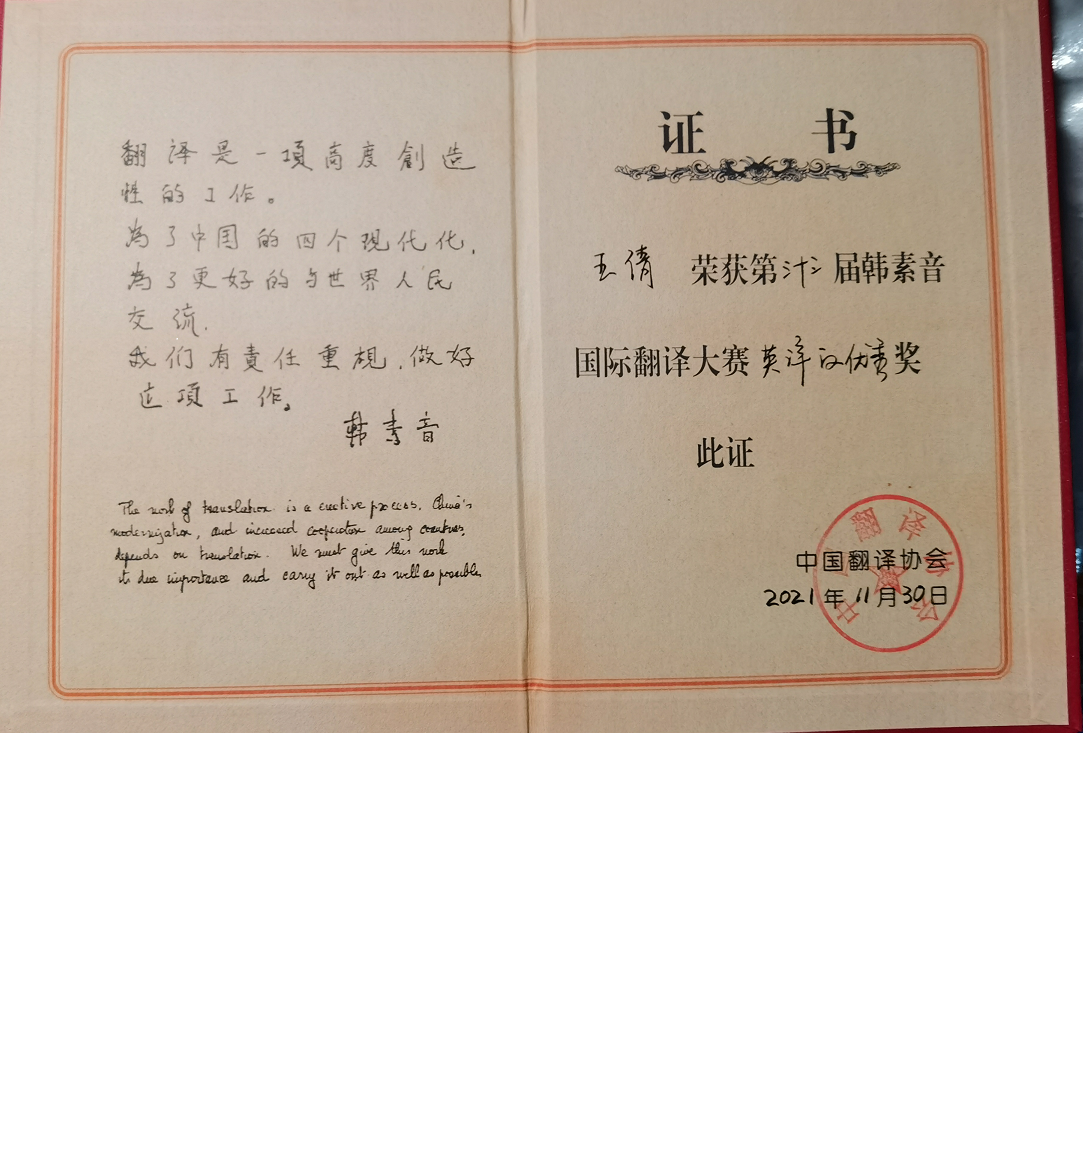 翻译是一項高度創造
性的工作。
為了中国的四个现代化,
為了更好的与世界人民
交流,
我们有責任重視,做好
这項工作。
韩素音
The work of translation is a creative process. China's
modernization, and increased cooperation among countries,
depends on translation. We must give this work
its due importance and carry it out as well as possible.
证 书
王倩 荣获第卅二届韩素音
国际翻译大赛英译汉优秀奖
此证
中国翻译协会
2021年11月30日
中国翻译协会